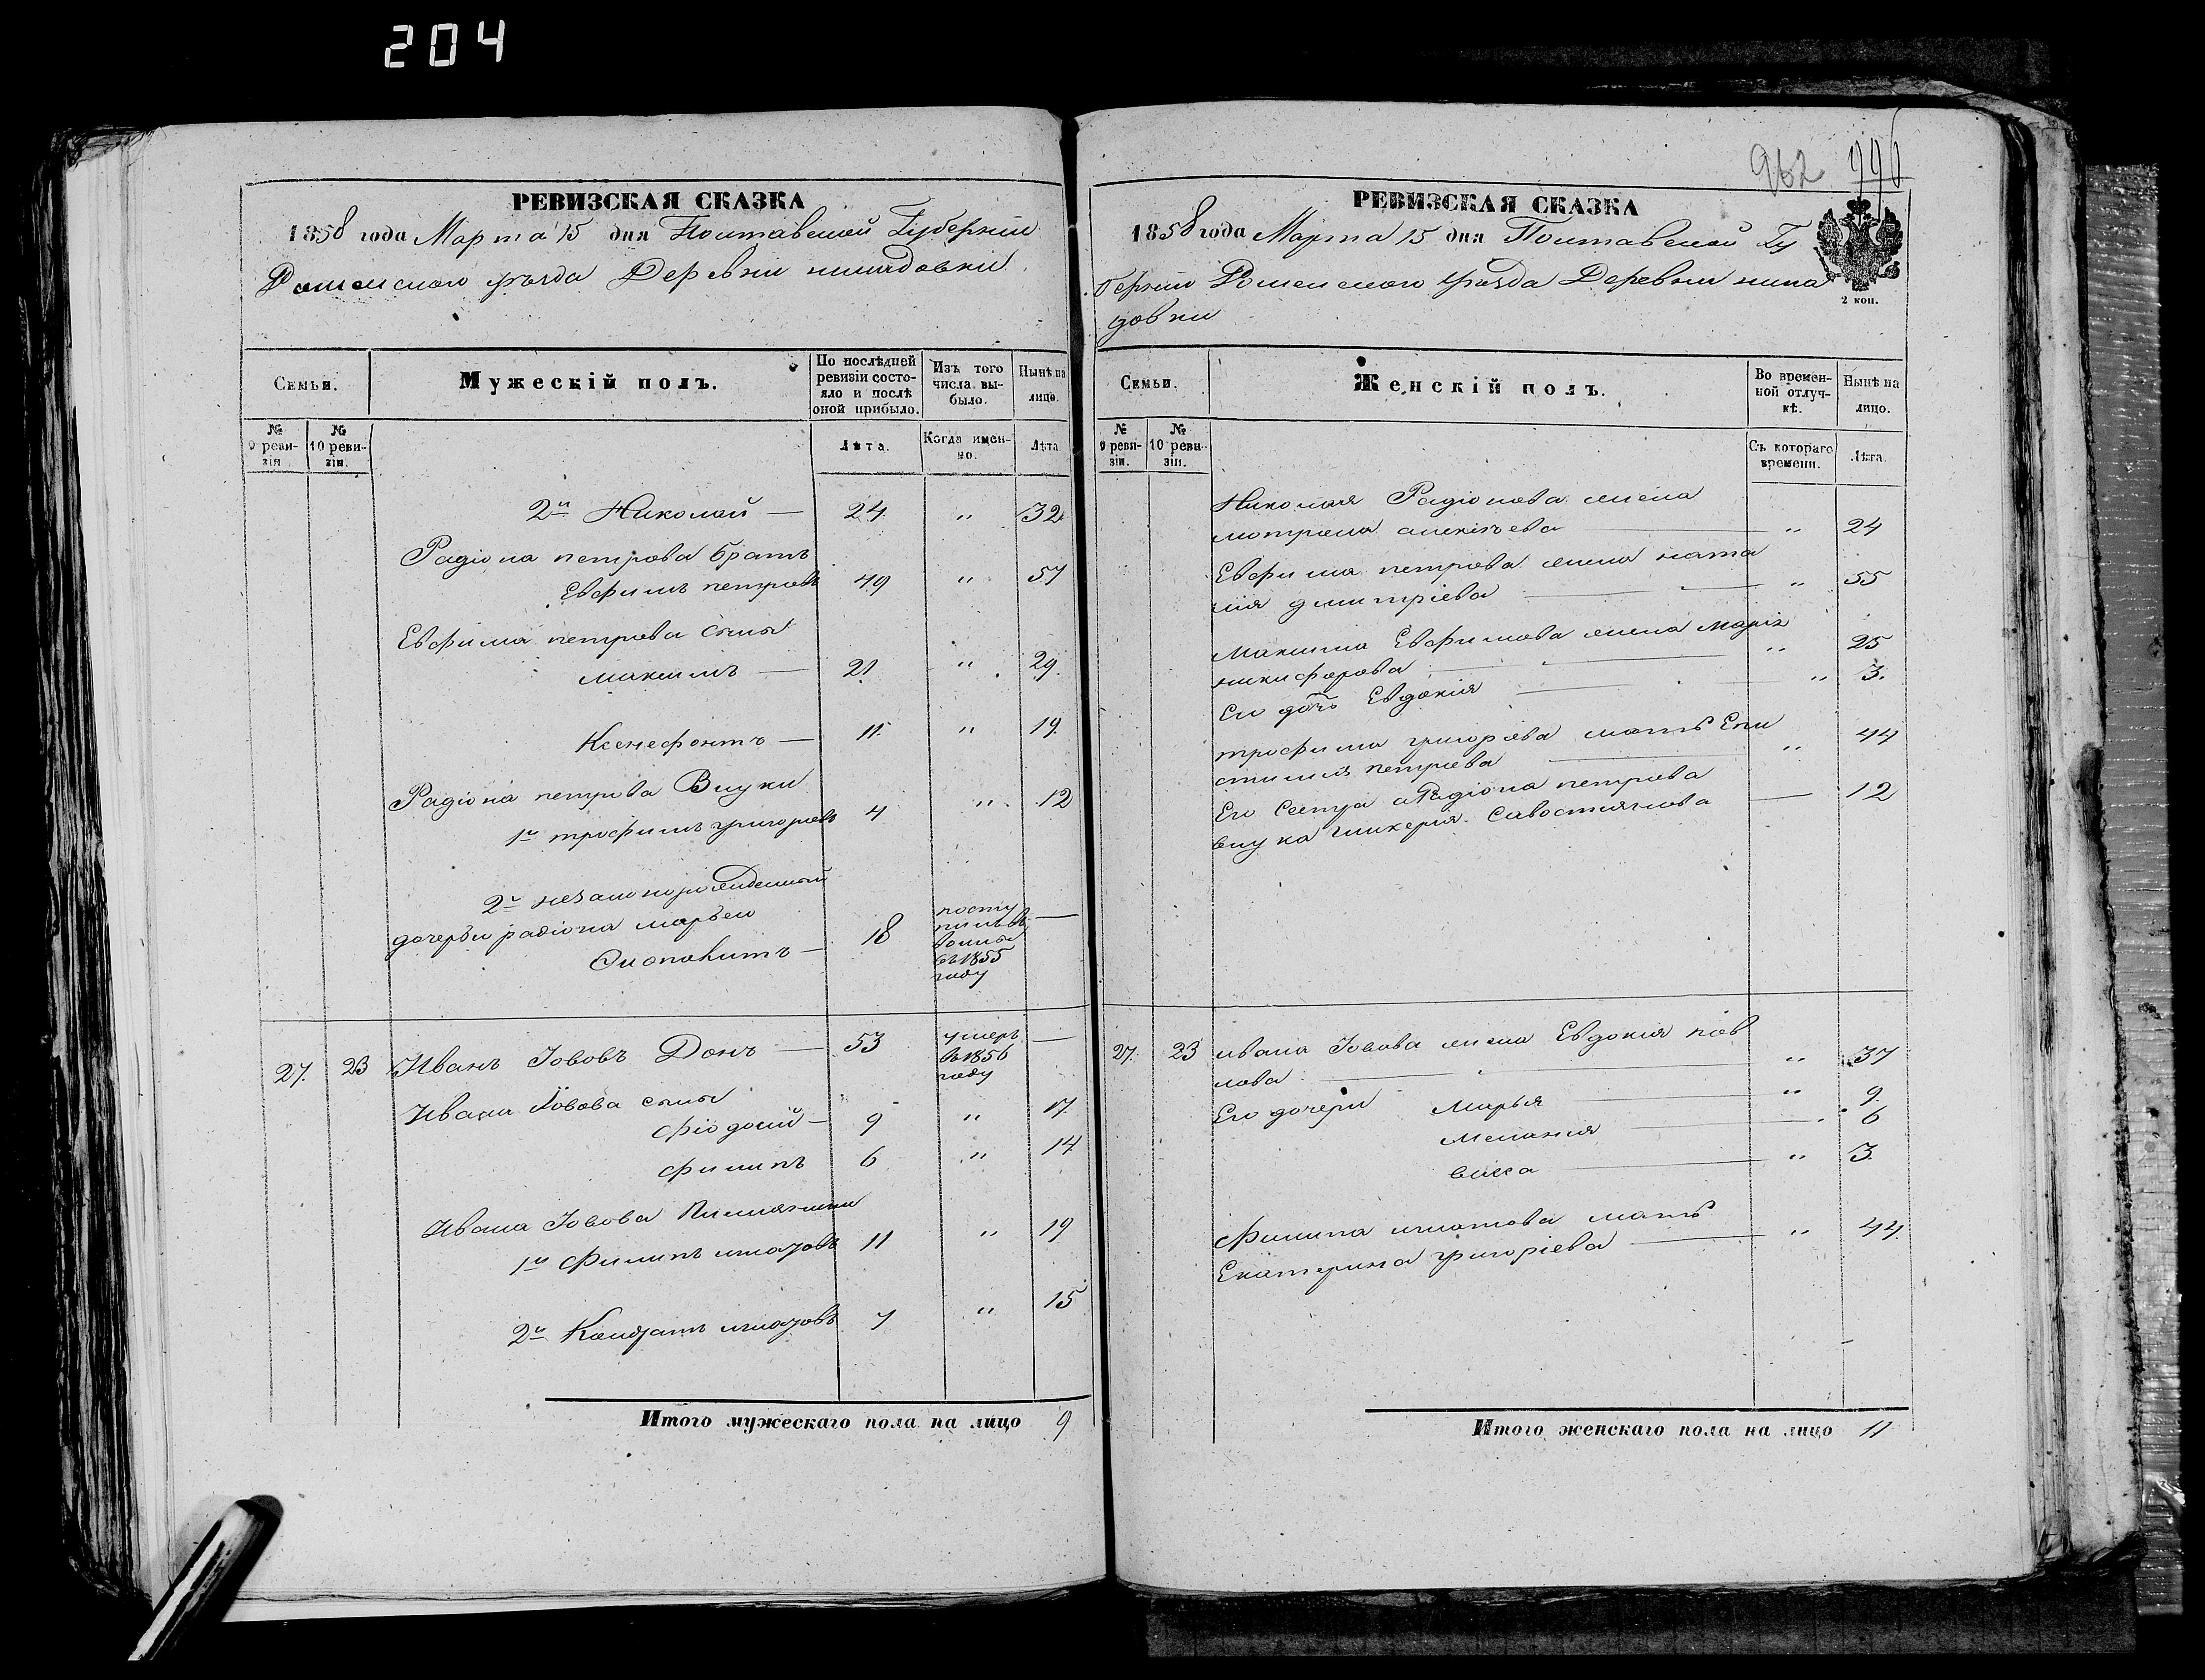 204
РЕВИЗСКАЯ СКАЗКА
1858 года Марта 15 дня Полтавской Губерніи
Роменского уѣзда Деревни
Семьи.
Мужескій полъ.
По послѣдней ревизіи состояло и послѣ оной прибыло.
Изъ того числа выбыло.
Нынѣ на лицо.
№ 9 ревизія
№ 10 ревизіи.
Лѣта.
Когда именно.
Лѣта
2й Николай — 24 " 32
Радіона петрова братъ
Евфимъ петровъ 49 " 57
Евфима петрова сыны
максимъ — 21 " 29
Ксенефонтъ — 11 " 19
Радіона петрова Внуки
1й трофимъ григорьевъ 4 " 12
2й незаконорожденный
дочерью радіона марьею
— 18 посту
пилъ въ
воины
въ 1855
году —
27. 23 Иванъ Іововъ Донъ — 53 умеръ
въ 1856
году —
Ивана Іовова сыны
фіодосій — 9 " 17
филипъ 6 " 14
Ивана Іовова Племянники
1й филипъ игнатовъ 11 " 19
2й Кондратъ игнатовъ 7 " 15
Итого мужескаго пола на лицо 9
962 996
РЕВИЗСКАЯ СКАЗКА
1858 года Марта 15 дня Полтавской Гу
берніи Роменского уѣзда Деревни
довки
2 коп.
Семьи.
Женскій полъ.
Во временной отлучкѣ.
Нынѣ на лицо.
№ 9 ревизіи.
№ 10 ревизіи.
Съ котораго времени.
Лѣта.
Николая Радіонова жена
мотрона алексѣева — " 24
Евфима петрова жена ната
лія дмитріева — " 55
Максима Евфимова жена марія
никифорова — " 25
Его дочь Евдокія — " 3.
трофима григорьева мать Епи
стимія петрова — " 44
Его сестра а Радіона петрова
внука гликерія Савостиянова — 12
27. 23 ивана Іовова жена Евдокия пав
лова — " 37
Его дочери Марья — " 9.
Мелания — 6
васса — " 3.
Филипа игнатова мать
Екатерина григоріева — " 44
Итого женскаго пола на лицо 11